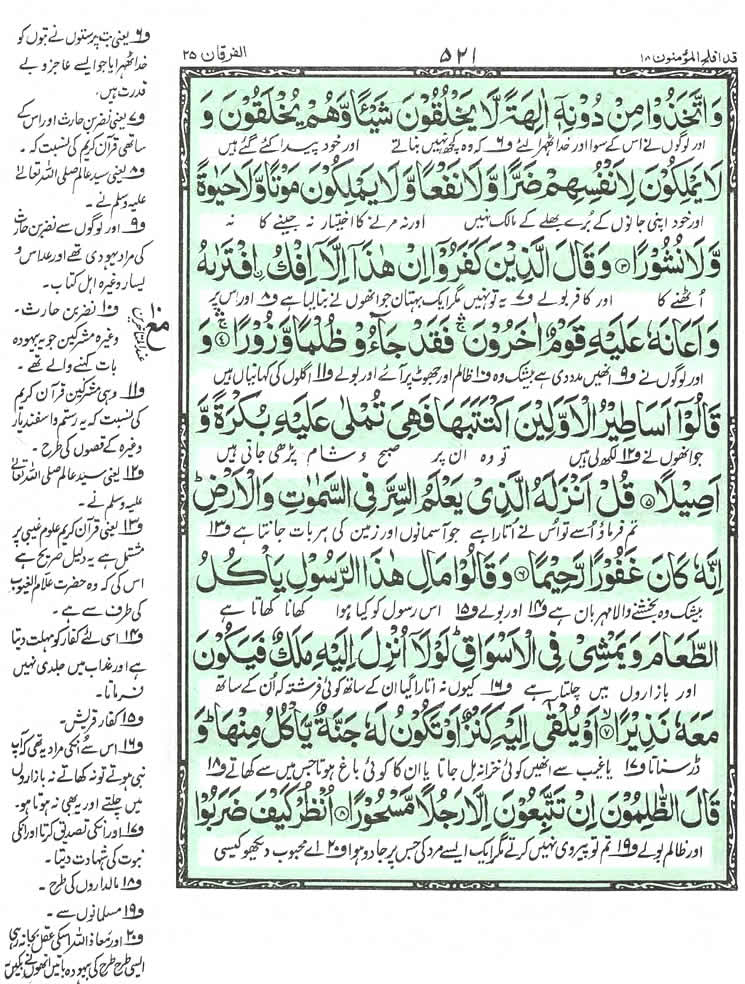 قد افلح المؤمنون ١٨
٥٢١
الفرقان ٢٥
وَاتَّخَذُوْا مِنْ دُوْنِهٖۤ اٰلِهَةً لَّا يَخْلُقُوْنَ شَيْـًٔا وَّهُمْ يُخْلَقُوْنَ وَ
اور لوگوں نے اس کے سوا اور خدا ٹھہرا لئے و۶ کہ وہ کچھ نہیں بناتے اور خود پیدا کئے گئے ہیں
لَا يَمْلِكُوْنَ لِاَنْفُسِهِمْ ضَرًّا وَّلَا نَفْعًا وَّلَا يَمْلِكُوْنَ مَوْتًا وَّلَا حَيٰوةً
اور خود اپنی جانوں کے برے بھلے کے مالک نہیں اور نہ مرنے کا اختیار نہ جینے کا نہ
وَّلَا نُشُوْرًا ۝۳ وَقَالَ الَّذِيْنَ كَفَرُوْۤا اِنْ هٰذَاۤ اِلَّاۤ اِفْكُ ۨافْتَرٰىهُ
اٹھنے کا اور کافر بولے و۷ یہ تو نہیں مگر ایک بہتان جو انھوں نے بنا لیا ہے و۸ اور اس پر
وَاَعَانَهٗ عَلَيْهِ قَوْمٌ اٰخَرُوْنَ ۛۚ فَقَدْ جَآءُوْ ظُلْمًا وَّزُوْرًا ۛۚ ۝۴ وَ
اور لوگوں نے و۹ انھیں مدد دی ہے بیشک وہ و۱۰ ظالم اور جھوٹ پر آئے اور بولے و۱۱ اگلوں کی کہانیاں ہیں
قَالُوْۤا اَسَاطِيْرُ الْاَوَّلِيْنَ اكْتَتَبَهَا فَهِيَ تُمْلٰى عَلَيْهِ بُكْرَةً وَّ
جو انھوں نے و۱۲ لکھ لی ہیں تو وہ ان پر صبح و شام پڑھی جاتی ہیں
اَصِيْلًا ۝۵ قُلْ اَنْزَلَهُ الَّذِيْ يَعْلَمُ السِّرَّ فِي السَّمٰوٰتِ وَالْاَرْضِ ؕ
تم فرماؤ اسے تو اس نے اتارا ہے جو آسمانوں اور زمین کی ہر بات جانتا ہے و۱۳
اِنَّهٗ كَانَ غَفُوْرًا رَّحِيْمًا ۝۶ وَقَالُوْا مَالِ هٰذَا الرَّسُوْلِ يَاْكُلُ
بیشک وہ بخشنے والا مہربان ہے و۱۴ اور بولے و۱۵ اس رسول کو کیا ہوا کھانا کھاتا ہے
الطَّعَامَ وَيَمْشِيْ فِي الْاَسْوَاقِ ؕ لَوْلَاۤ اُنْزِلَ اِلَيْهِ مَلَكٌ فَيَكُوْنَ
اور بازاروں میں چلتا ہے و۱۶ کیوں نہ اتارا گیا ان کے ساتھ کوئی فرشتہ کہ ان کے ساتھ
مَعَهٗ نَذِيْرًا ۝۷ اَوْ يُلْقٰۤى اِلَيْهِ كَنْزٌ اَوْ تَكُوْنُ لَهٗ جَنَّةٌ يَّاْكُلُ مِنْهَا ؕ وَ
ڈر سناتا و۱۷ یا غیب سے انھیں کوئی خزانہ مل جاتا یا ان کا کوئی باغ ہوتا جس میں سے کھاتے و۱۸
قَالَ الظّٰلِمُوْنَ اِنْ تَتَّبِعُوْنَ اِلَّا رَجُلًا مَّسْحُوْرًا ۝۸ اُنْظُرْ كَيْفَ ضَرَبُوْا
اور ظالم بولے و۱۹ تم تو پیروی نہیں کرتے مگر ایک ایسے مرد کی جس پر جادو ہوا و۲۰ اے محبوب دیکھو کیسی
و۶ یعنی بت پرستوں نے بتوں کو
خدا ٹھہرایا جو ایسے عاجز و بے
قدرت ہیں۔
و۷ یعنی نضر بن حارث اور اس کے
ساتھی قرآن کریم کی نسبت کہ۔
و۸ یعنی سید عالم صلی اللہ تعالیٰ
علیہ وسلم نے۔
و۹ اور لوگوں سے نضر بن حارث
کی مراد یہودی تھے اور عداس و
یسار وغیرہ اہل کتاب۔
و۱۰ نضر بن حارث۔
وغیرہ مشرکین جو یہ بیہودہ
بات کہنے والے تھے۔
و۱۱ وہی مشرکین قرآن کریم
کی نسبت کہ یہ رستم و اسفندیار
وغیرہ کے قصوں کی طرح۔
و۱۲ یعنی سید عالم صلی اللہ تعالیٰ
علیہ وسلم نے۔
و۱۳ یعنی قرآن کریم علوم غیبی پر
مشتمل ہے یہ دلیل صریح ہے
اس کی کہ وہ حضرت علام الغیوب
کی طرف سے ہے۔
و۱۴ اسی لئے کفار کو مہلت دیتا
ہے اور عذاب میں جلدی نہیں
فرماتا۔
و۱۵ کفار قریش۔
و۱۶ اس سے انکی مراد یہ تھی کہ آپ
نبی ہوتے تو نہ کھاتے نہ بازاروں
میں چلتے اور یہ بھی نہ ہوتا ہو۔
و۱۷ اور انکی تصدیق کرتا اور انکی
نبوت کی شہادت دیتا۔
و۱۸ مالداروں کی طرح۔
و۱۹ مسلمانوں سے۔
و۲۰ اور معاذ اللہ اسکی عقل بجا نہ رہی
ایسی طرح طرح کی بیہودہ باتیں انھوں نے بکیں